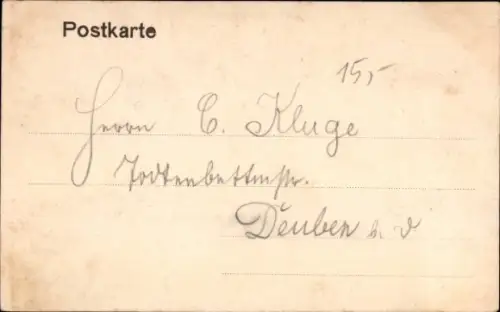 Postkarte
15,-
Herrn C. Kluge
Todtenbettmstr.
Deuben b. D